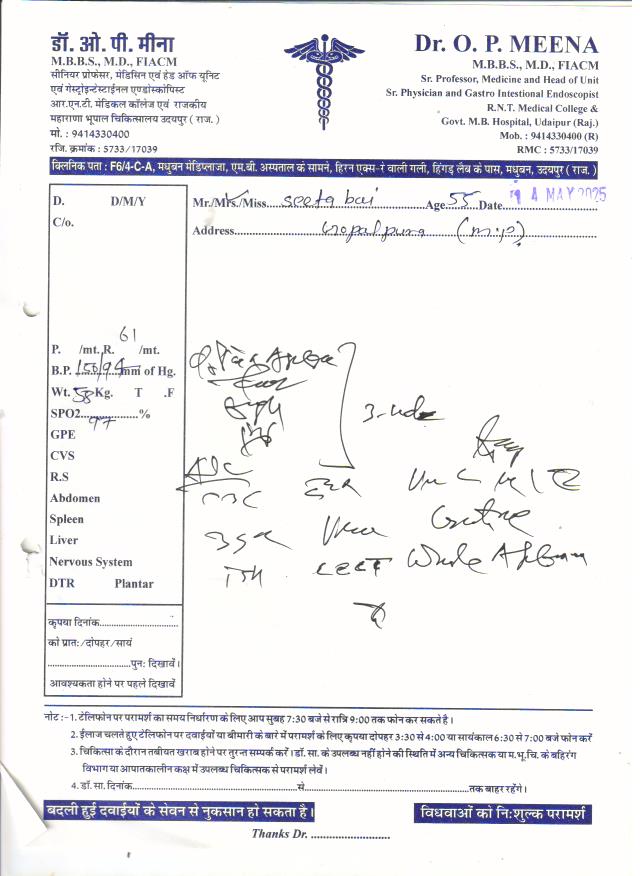 डॉ. ओ. पी. मीना
M.B.B.S., M.D., FIACM
सीनियर प्रोफेसर, मेडिसिन एवं हेड ऑफ यूनिट
एवं गेस्ट्रोइन्टेस्टाईनल एण्डोस्कोपिस्ट
आर.एन.टी. मेडिकल कॉलेज एवं राजकीय
महाराणा भूपाल चिकित्सालय उदयपुर ( राज. )
मो. : 9414330400
रजि. क्रमांक : 5733/17039
Dr. O. P. MEENA
M.B.B.S., M.D., FIACM
Sr. Professor, Medicine and Head of Unit
Sr. Physician and Gastro Intestional Endoscopist
R.N.T. Medical College &
Govt. M.B. Hospital, Udaipur (Raj.)
Mob. : 9414330400 (R)
RMC : 5733/17039
क्लिनिक पता : F6/4-C-A, मधुबन मेडिप्लाजा, एम.बी. अस्पताल के सामने, हिरन एक्स-रे वाली गली, हिंगड़ लैब के पास, मधुबन, उदयपुर ( राज. )
D. D/M/Y
C/o.
Mr./Mrs./Miss....seeta bai Age 55 Date 14 MAY 2025
Address gopalpura (m.p)
61
P. /mt. R. /mt.
B.P. 150/94 mm of Hg.
Wt. 58 Kg. T .F
SPO2 97 %
GPE
CVS
R.S
Abdomen
Spleen
Liver
Nervous System
DTR Plantar
CBC
CECT Whole Abdomen
कृपया दिनांक
को प्रातः/दोपहर/सायं
पुनः दिखावें।
आवश्यकता होने पर पहले दिखावें
नोट :-1. टेलिफोन पर परामर्श का समय निर्धारण के लिए आप सुबह 7:30 बजे से रात्रि 9:00 तक फोन कर सकते है।
2. ईलाज चलते हुए टेलिफोन पर दवाईयों या बीमारी के बारे में परामर्श के लिए कृपया दोपहर 3:30 से 4:00 या सायंकाल 6:30 से 7:00 बजे फोन करें
3. चिकित्सा के दौरान तबीयत खराब होने पर तुरन्त सम्पर्क करें। डॉ. सा. के उपलब्ध नहीं होने की स्थिति में अन्य चिकित्सक या म.भू.चि. के बहिरंग
विभाग या आपातकालीन कक्ष में उपलब्ध चिकित्सक से परामर्श लेवें।
4. डॉ. सा. दिनांक से तक बाहर रहेंगे।
बदली हुई दवाईयों के सेवन से नुकसान हो सकता है।
विधवाओं को नि:शुल्क परामर्श
Thanks Dr.